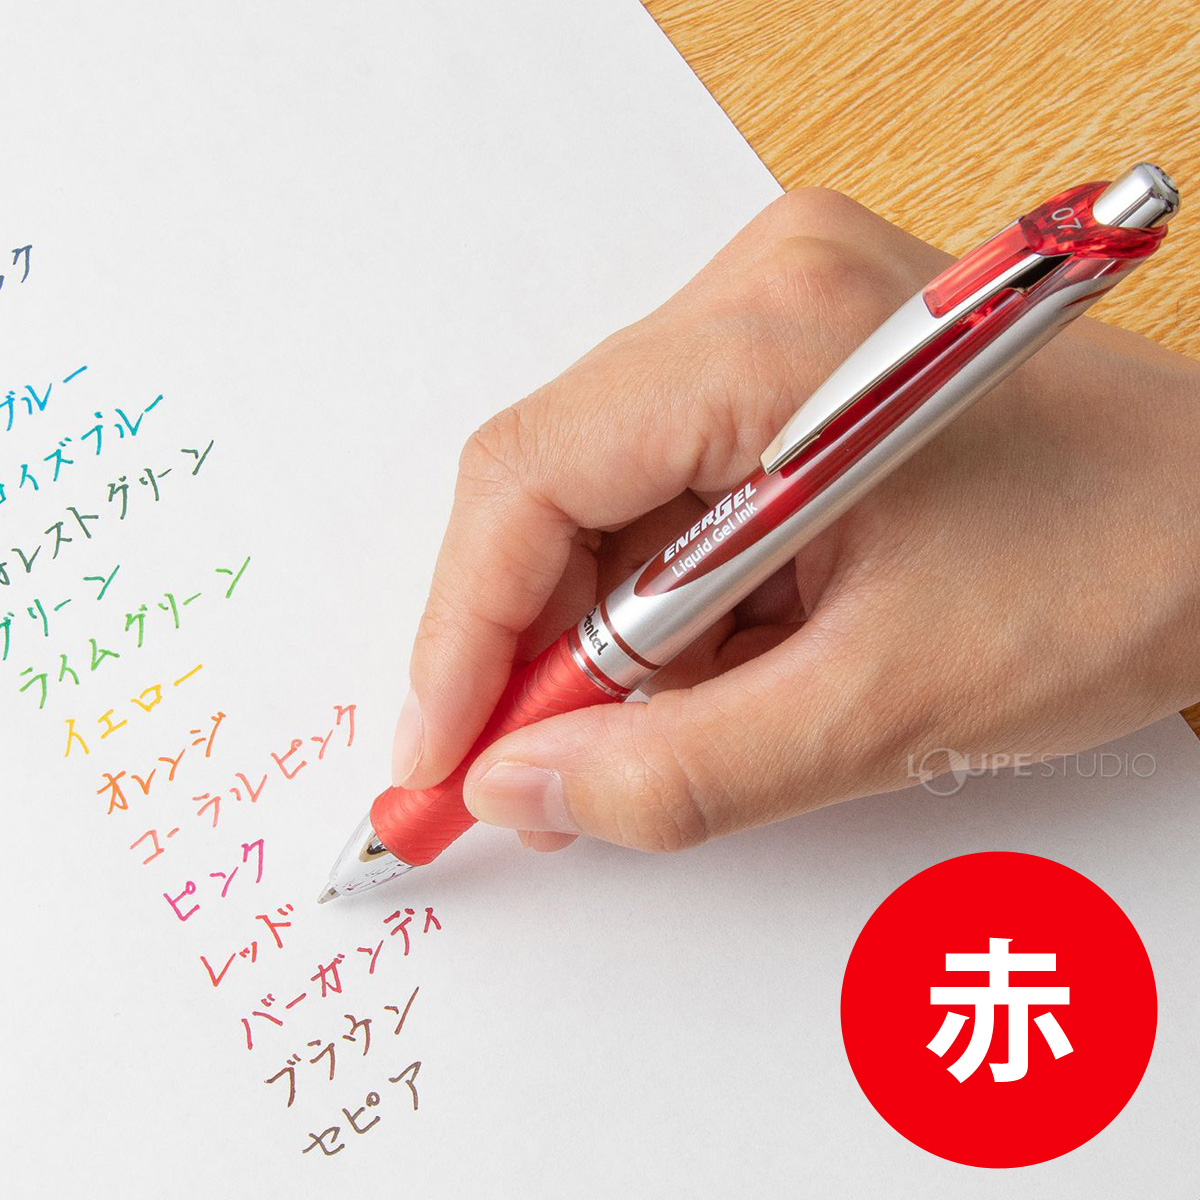 ック
ブルー
コイズブルー
ォレストグリーン
グリーン
ライムグリーン
イエロー
オレンジ
コーラルピンク
ピンク
レッド
バーガンディ
ブラウン
セピア
07
ENERGEL
Liquid Gel Ink
Pentel
LOUPE STUDIO
赤